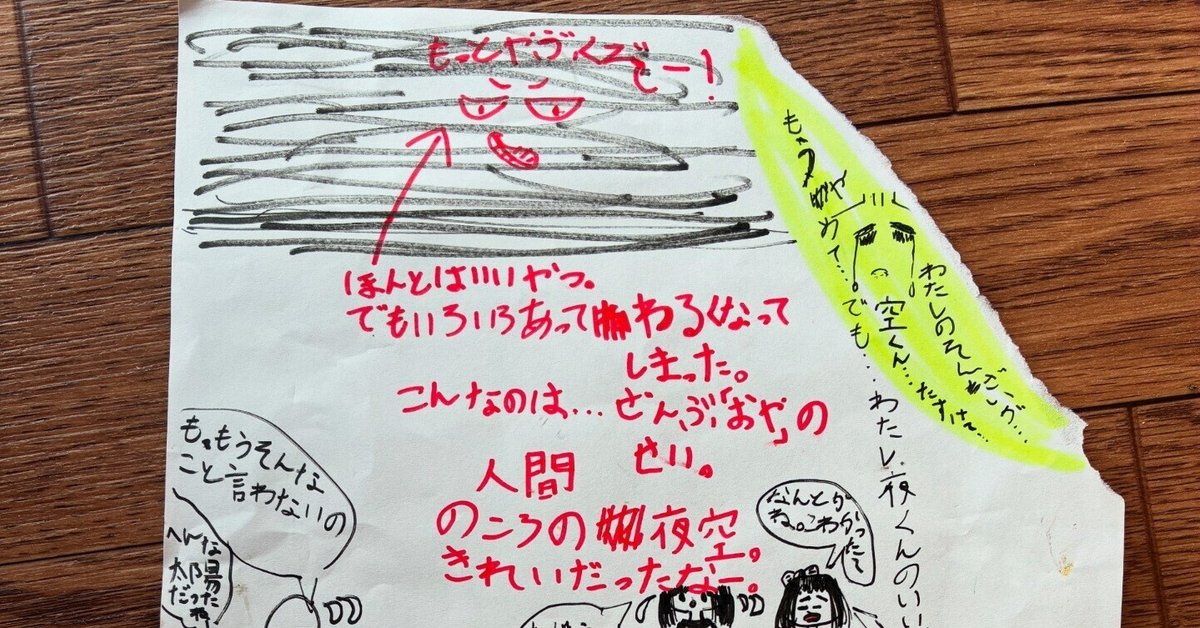 もっとやぶくぞー!
ほんとはいいやつ。
でもいろいろあってわるくなって
しまった。
こんなのは…ぜんぶ「おや」の
せい。
人間
のころの夜空。
きれいだったなー。
もうやめて…。でも…わたし、夜くんのいい
空くん…たすけて…
わたしのそんざいが…
も、もうそんな
こと言わないの
へんな
太陽
なんとか
ね。こわかったて